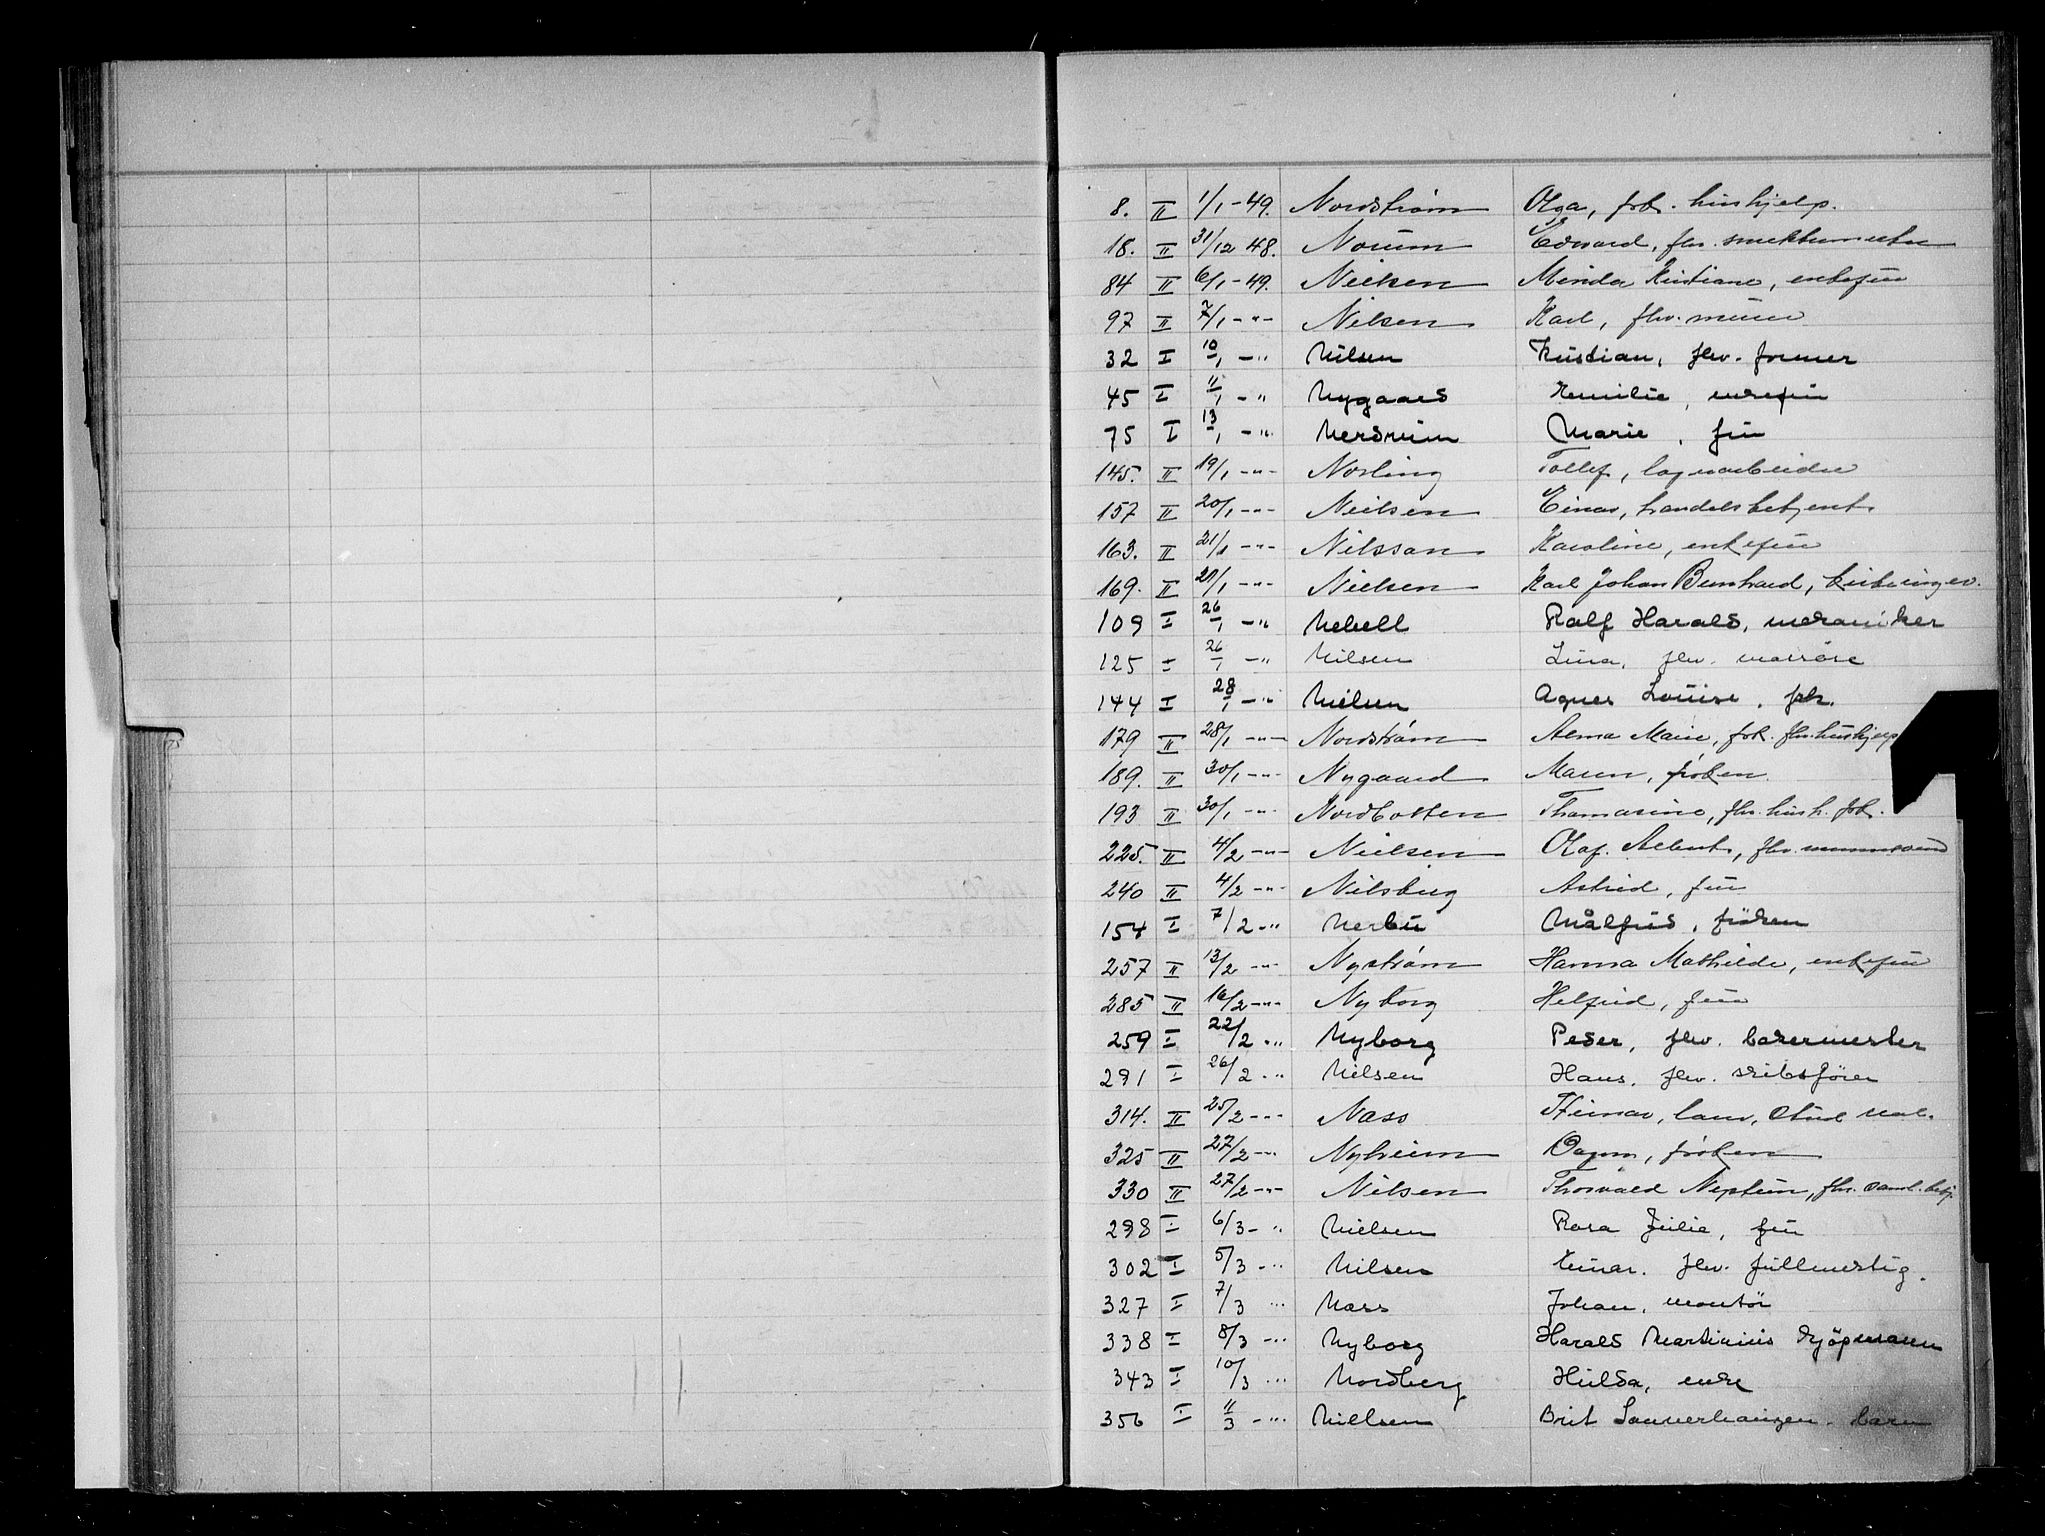 8. II 1/1-49. Nordstrøm Olga, frk. hushjelp.
18. II 31/12 48. Norum Edvard, fhv.
84 II 6/1-49. Nielsen Minda Kristiane, enkefru
97 II 7/1-"- Nilsen Karl, fhv. murer
32 I 10/1 -" Nilsen Kristian, fhv. former
45 I 11/1 -" Nygaard Emilie, enkefru
75 I 13/1 -" Nerdrum Marie, fru
145. II 19/1 -"- Norling Tollef, lagerarbeider
157 II 20/1 -"- Nielsen Einar, handelsbetjent
163. II 21/1 -"- Nilsson Karoline, enkefru
169. II 21/1 -"- Nielsen Karl Johan Bernhard,
109 I 26/1 -" Nebell Ralf Harald, mekaniker
125 I 26/1 -" Nilsen Lina, fhv. massøse
144 I 28/1 -" Nielsen Agnes Louise, frk.
179 II 28/1 -"- Nordstrøm Alma Marie, frk. fhv. hushjelp
189. II 30/1 -"- Nygaard Maren, frøken
193 II 30/1 -"- Nordbotten Thomasine, fhv. hush. frk.
225. II 4/2 -"- Nielsen Olaf Albert, fhv.
240 II 4/2 -"- Nilsberg Astrid, fru
154 I 7/2 -" Nerbu Målfrid, frøken
257 II 13/2 -"- Nystrøm Hanna Mathilde, enkefru
285 II 16/2 -"- Nyborg Helfrid, fru
259 I 22/2 -" Nyborg Peder, fhv. bakermester
291 I 26/2 -" Nilsen Hans, fhv. skibsfører
314. II 25/2 -"- Næss Steinar, barn,
325 II 27/2 -"- Nyheim Dagny, frøken
330 II 27/2 -"- Nilsen Thorvald Neptun, fhv.
298 I 6/3 - " Nielsen Rosa Julie, fru
302 I 5/3 -" Nilsen Einar. fhv. fullmektig.
327 I 7/3 -" Næss Johan, montør
338 I 8/3 -" Nyborg Harald Martinius kjøpmann
343 I 10/3 -" Nordberg Hulda, enke
356 I 11/3 -" Nielsen Brit barn